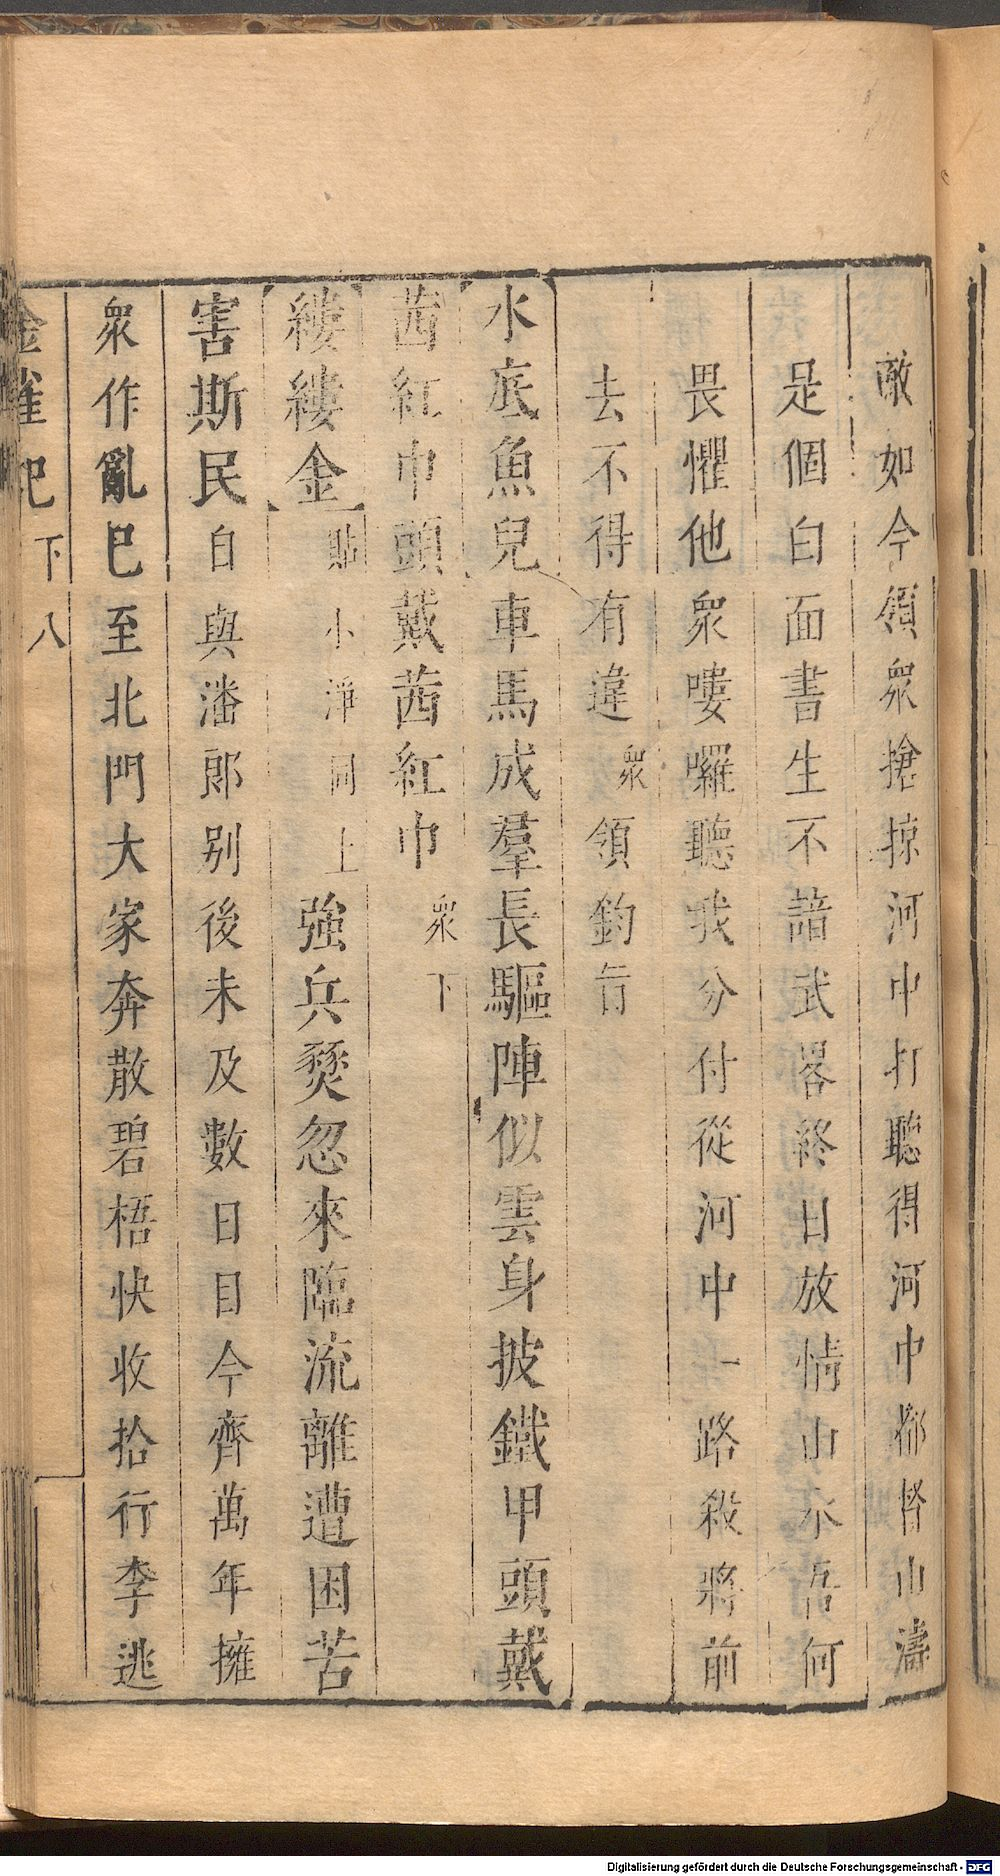 敵如今領眾搶掠河中打聽得河中都督山濤
是個白面書生不諳武畧終日放情山水吾何
畏懼他眾嘍囉聽我分付從河中一路殺將前
去不得有違眾領鈞旨
水底魚兒車馬成羣長驅陣似雲身披鐵甲頭戴
茜紅巾頭戴茜紅巾眾下
縷縷金貼小淨同上強兵燹忽來臨流離遭困苦
害斯民白與潘郎别後未及數日目今齊萬年擁
眾作亂巳至北門大家奔散碧梧快收拾行李逃
金雀記下八
Digitalisierung gefördert durch die Deutsche Forschungsgemeinschaft - DFG